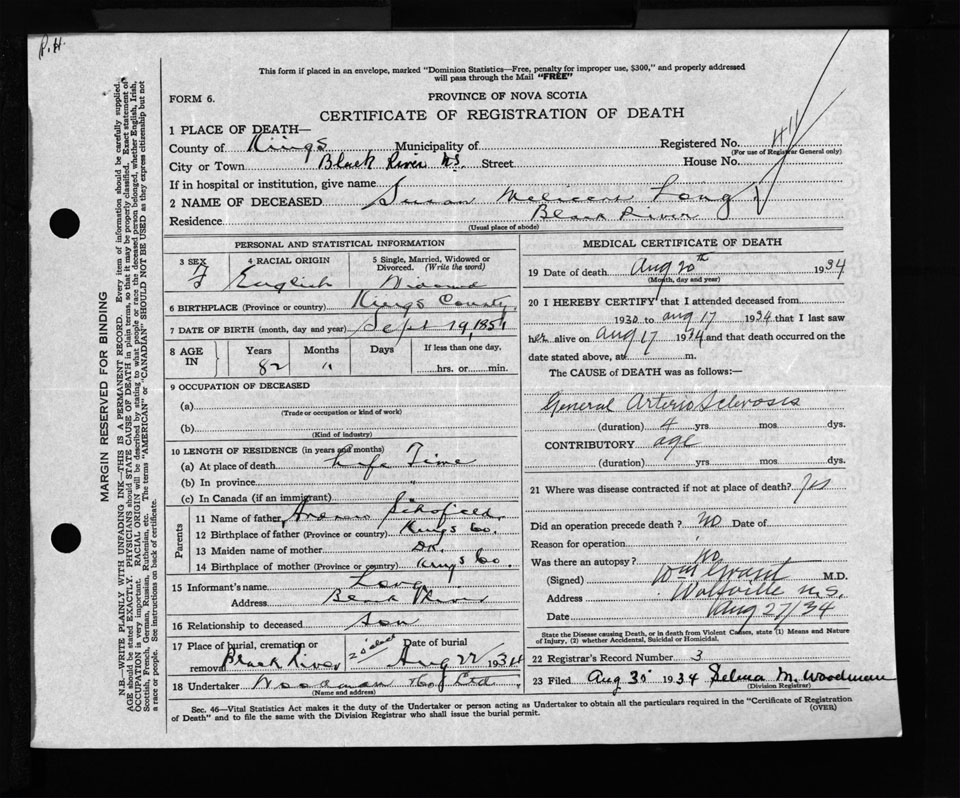 R.H.
This form if placed in an envelope, marked "Dominion Statistics—Free, penalty for improper use, $300," and properly addressed
will pass through the Mail "FREE"
FORM 6.
PROVINCE OF NOVA SCOTIA
CERTIFICATE OF REGISTRATION OF DEATH
1 PLACE OF DEATH—
County of Kings Municipality of Registered No. 411
(For use of Registrar General only)
City or Town Black River N.S. Street House No.
If in hospital or institution, give name
2 NAME OF DECEASED Susan Long
Residence Black River
(Usual place of abode)
PERSONAL AND STATISTICAL INFORMATION
3 SEX F
4 RACIAL ORIGIN English
5 Single, Married, Widowed or Divorced. (Write the word) Widowed
6 BIRTHPLACE (Province or country) Kings County
7 DATE OF BIRTH (month, day and year) Sept 19, 1851
8 AGE IN Years Months Days If less than one day,
82 11 hrs. or min.
9 OCCUPATION OF DECEASED
(a)
(Trade or occupation or kind of work)
(b)
(Kind of industry)
10 LENGTH OF RESIDENCE (in years and months)
(a) At place of death Life Time
(b) In province "
(c) In Canada (if an immigrant)
Parents
11 Name of father Schofield
12 Birthplace of father (Province or country) Kings Co.
13 Maiden name of mother D.K.
14 Birthplace of mother (Province or country) Kings Co.
15 Informant's name Long
Address Black River
16 Relationship to deceased Son
17 Place of burial, cremation or removal Black River Date of burial Aug 22 1934
20'clock
18 Undertaker Woodman & Co Ltd.
(Name and address)
MEDICAL CERTIFICATE OF DEATH
19 Date of death Aug 20th 1934
(Month, day and year)
20 I HEREBY CERTIFY that I attended deceased from
1930 to Aug 17 1934 that I last saw
her alive on Aug 17 1934 and that death occurred on the
date stated above, at m.
The CAUSE of DEATH was as follows:—
General Arterio Sclerosis
(duration) 4 yrs mos dys.
CONTRIBUTORY age
(duration) yrs mos dys.
21 Where was disease contracted if not at place of death? Yes
Did an operation precede death? no Date of
Reason for operation
Was there an autopsy? no
(Signed) Wm Grant M.D.
Address Wolfville N.S.
Date Aug 27/34
State the Disease causing Death, or in death from Violent Causes, state (1) Means and Nature
of Injury, (2) whether Accidental, Suicidal or Homicidal.
22 Registrar's Record Number 3
23 Filed Aug 30 1934 Selma M. Woodman
(Division Registrar)
Sec. 46—Vital Statistics Act makes it the duty of the Undertaker or person acting as Undertaker to obtain all the particulars required in the "Certificate of Registration
of Death" and to file the same with the Division Registrar who shall issue the burial permit.
(OVER)
MARGIN RESERVED FOR BINDING
N.B.—WRITE PLAINLY WITH UNFADING INK—THIS IS A PERMANENT RECORD. Every item of information should be carefully supplied.
AGE should be stated EXACTLY. PHYSICIANS should STATE CAUSE OF DEATH in plain terms, so that it may be properly classified. Exact statement of
OCCUPATION is very important. RACIAL ORIGIN will be described by stating to what people or race the deceased person belonged, whether English, Irish,
Scottish, French, German, Russian, Ruthenian, etc. The terms "AMERICAN" or "CANADIAN" SHOULD NOT BE USED as they express citizenship but not
a race or people. See instructions on back of certificate.